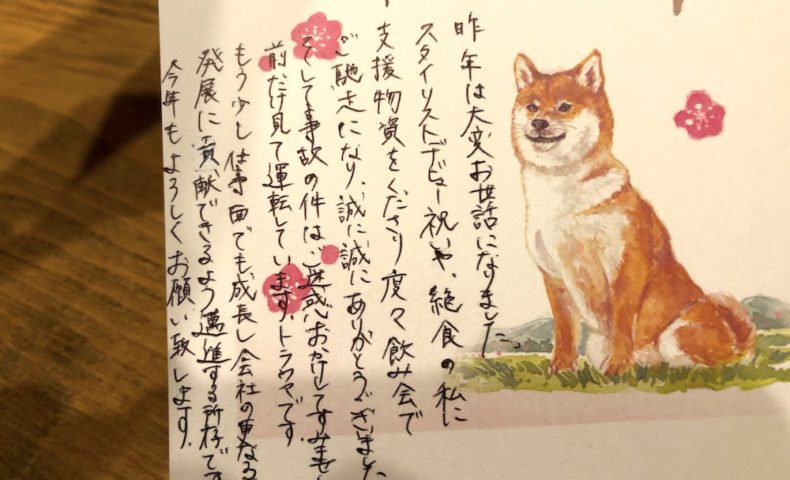 昨年は大変お世話になりました。
スタイリストデビュー祝いや、絶食の私に
支援物資をくださり度々飲み会で
ご馳走になり、誠に誠にありがとうございました
そして事故の件は、ご迷惑おかけしてすみませ
前だけ見て運転しています。トラウマです。
もう少し仕事面でも成長し会社の更なる
発展に貢献できるよう邁進する所存です
今年もよろしくお願い致します。